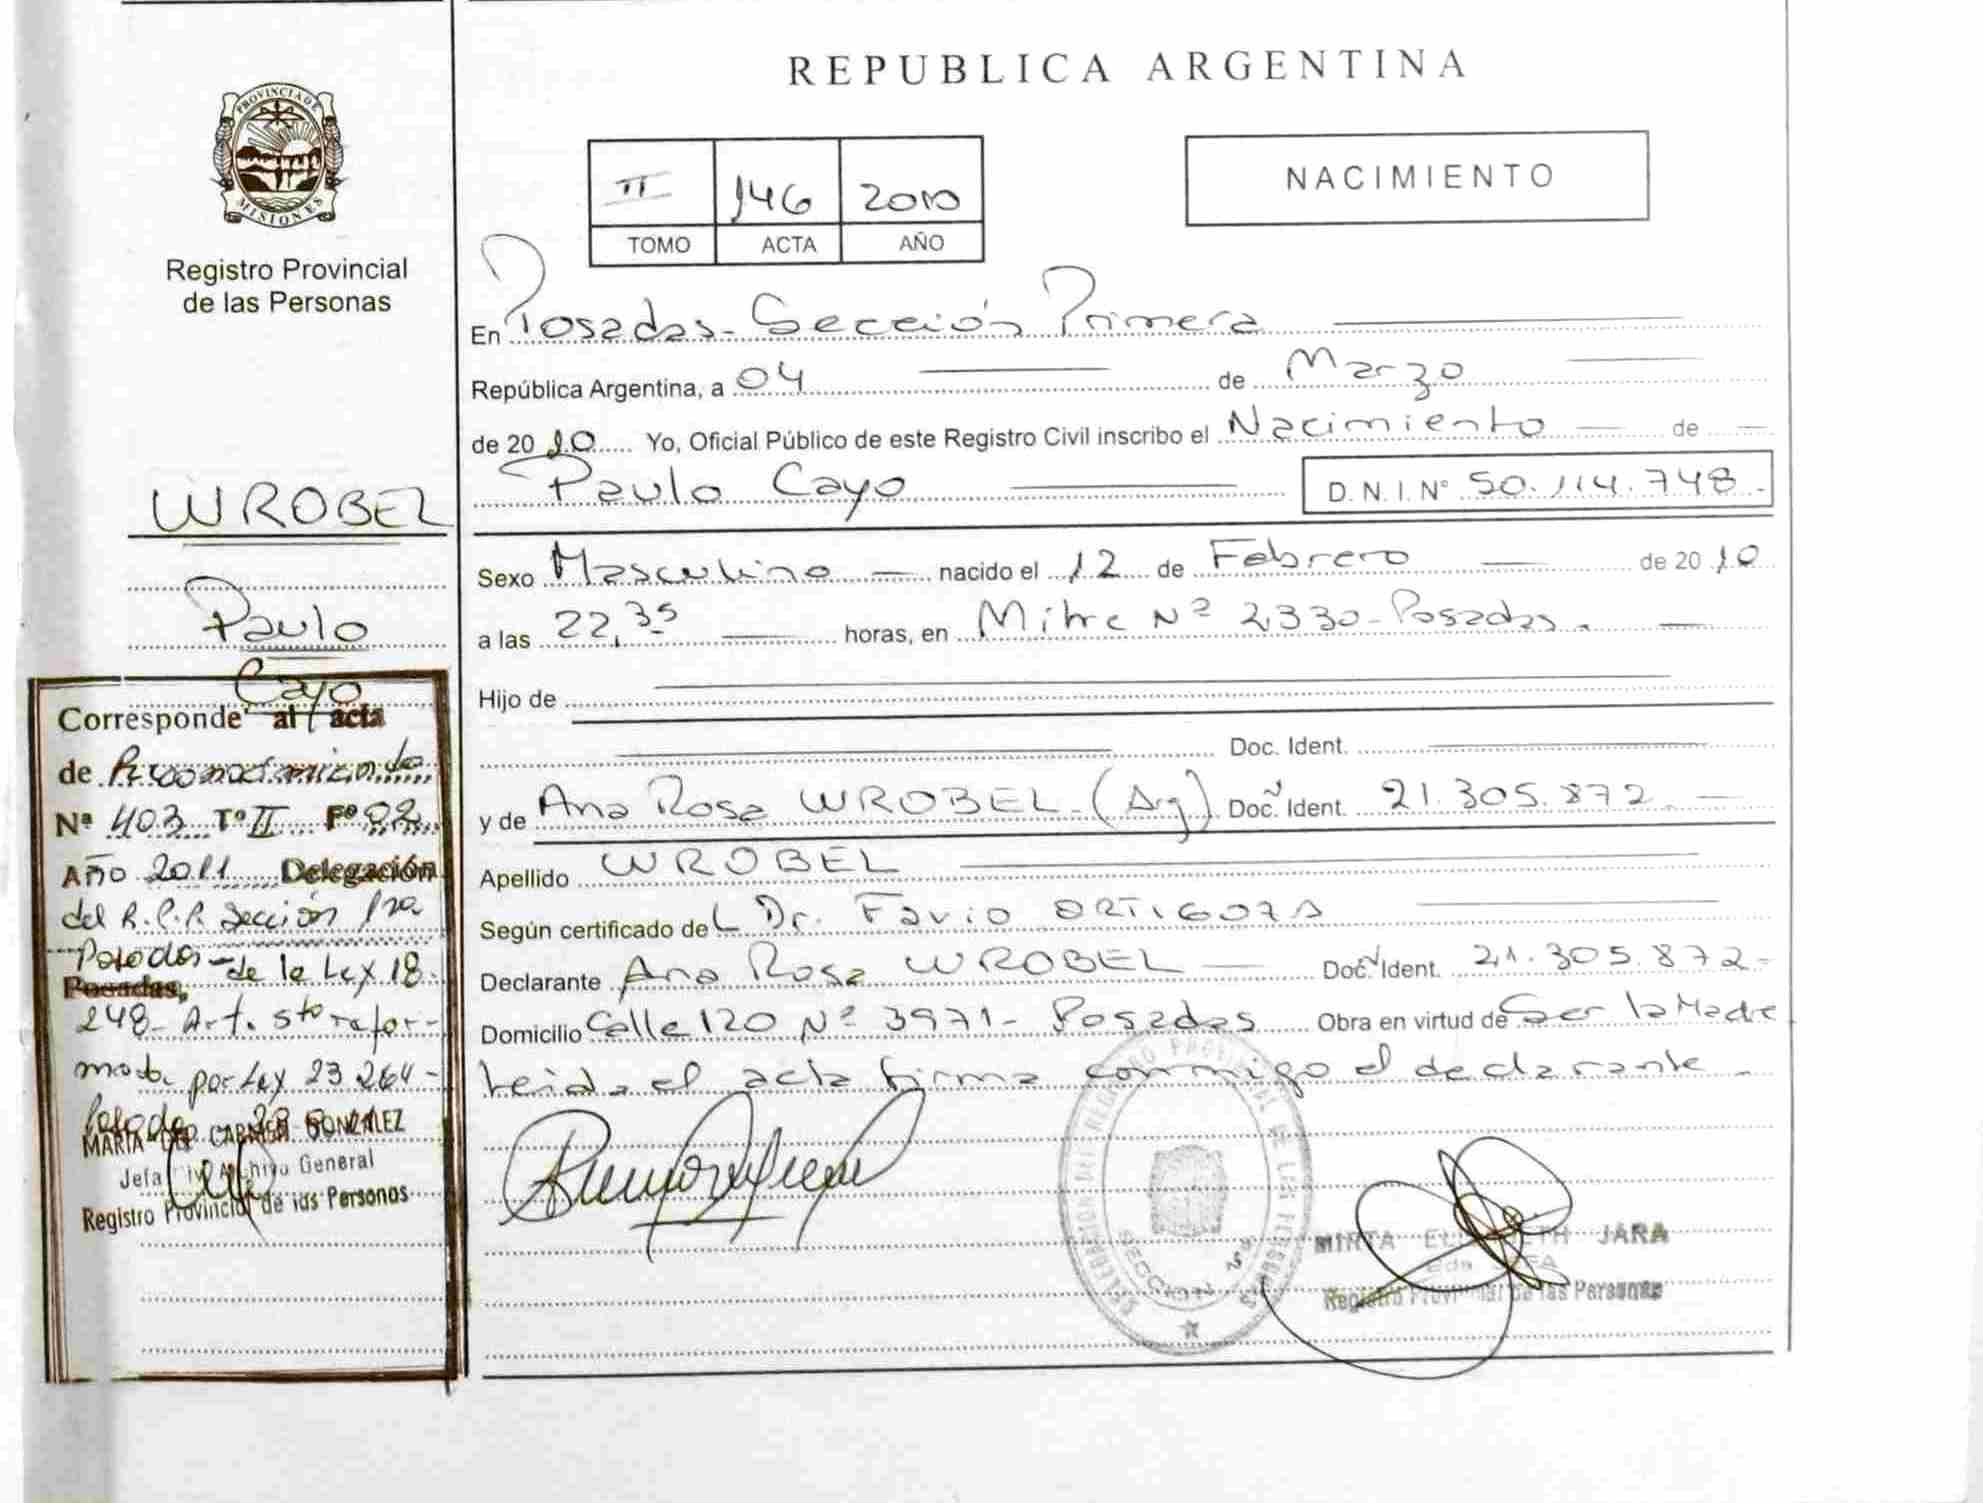 REPUBLICA ARGENTINA
PROVINCIA DE MISIONES
Registro Provincial
de las Personas
II 146 2010
TOMO ACTA AÑO
NACIMIENTO
En Posadas - Sección Primera
República Argentina, a 04 de Marzo
de 2010 Yo, Oficial Público de este Registro Civil inscribo el Nacimiento de
Paulo Cayo D.N.I. Nº 50.114.748.-
Sexo Masculino nacido el 12 de Febrero de 2010
a las 22,35 horas, en Mitre Nº 2330 - Posadas.
Hijo de
Doc. Ident.
y de Ana Rosa WROBEL - (Arg) Doc. Ident. 21.305.872
Apellido WROBEL
Según certificado de L Dr. Favio ORTIGOZA
Declarante Ana Rosa WROBEL Doc. Ident. 21.305.872-
Domicilio Calle 120 Nº 3971 - Posadas Obra en virtud de Ser la Madre
Leida el acta firma conmigo el declarante -
WROBEL
Paulo
Cayo
Corresponde al acta
de Reconocimiento
Nª 403 Tº II Fº 02
Año 2011 Delegación
del R.P.P. Sección 1ra
Posadas - de la Ley 18.
Posadas,
248 - Art. 5to refor-
mado por Ley 23264 -
Posadas
MARIA DEL CARMEN GONZALEZ
Jefa Div. Archivo General
Registro Provincial de las Personas
REGISTRO PROVINCIAL DE LAS PERSONAS
SECCION
MIRTA ELIZABETH JARA
Registro Provincial de las Personas